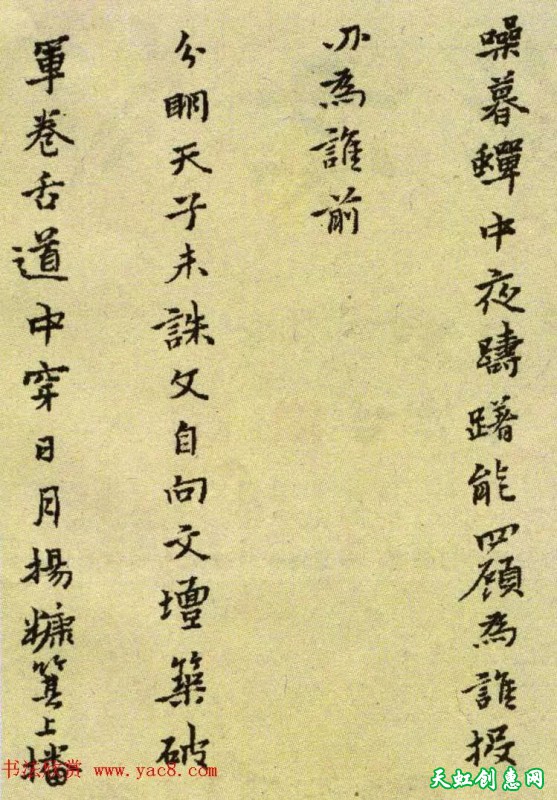 噪暮蟬中夜躊躇能四顧為誰投
亦為誰前
分明天子未誅文自向文壇築破
軍卷舌道中穿日月揚糠箕上播
书法欣赏 www.yac8.com
天虹创惠网